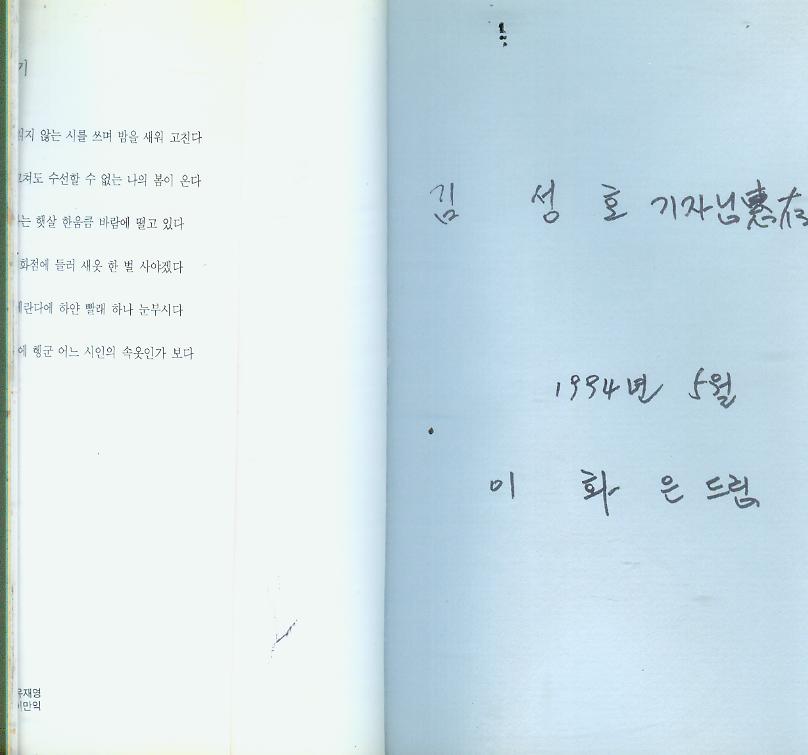 기
않는 시를 쓰며 밤을 새워 고친다
수선할 수 없는 나의 봄이 온다
햇살 한움큼 바람에 떨고 있다
화점에 들러 새옷 한 벌 사야겠다
하얀 빨래 하나 눈부시다
에 헹군 어느 시인의 속옷인가 보다
유재영
이만익
김 성 호 기자님 惠存
1994년 5월
이 화 은 드림